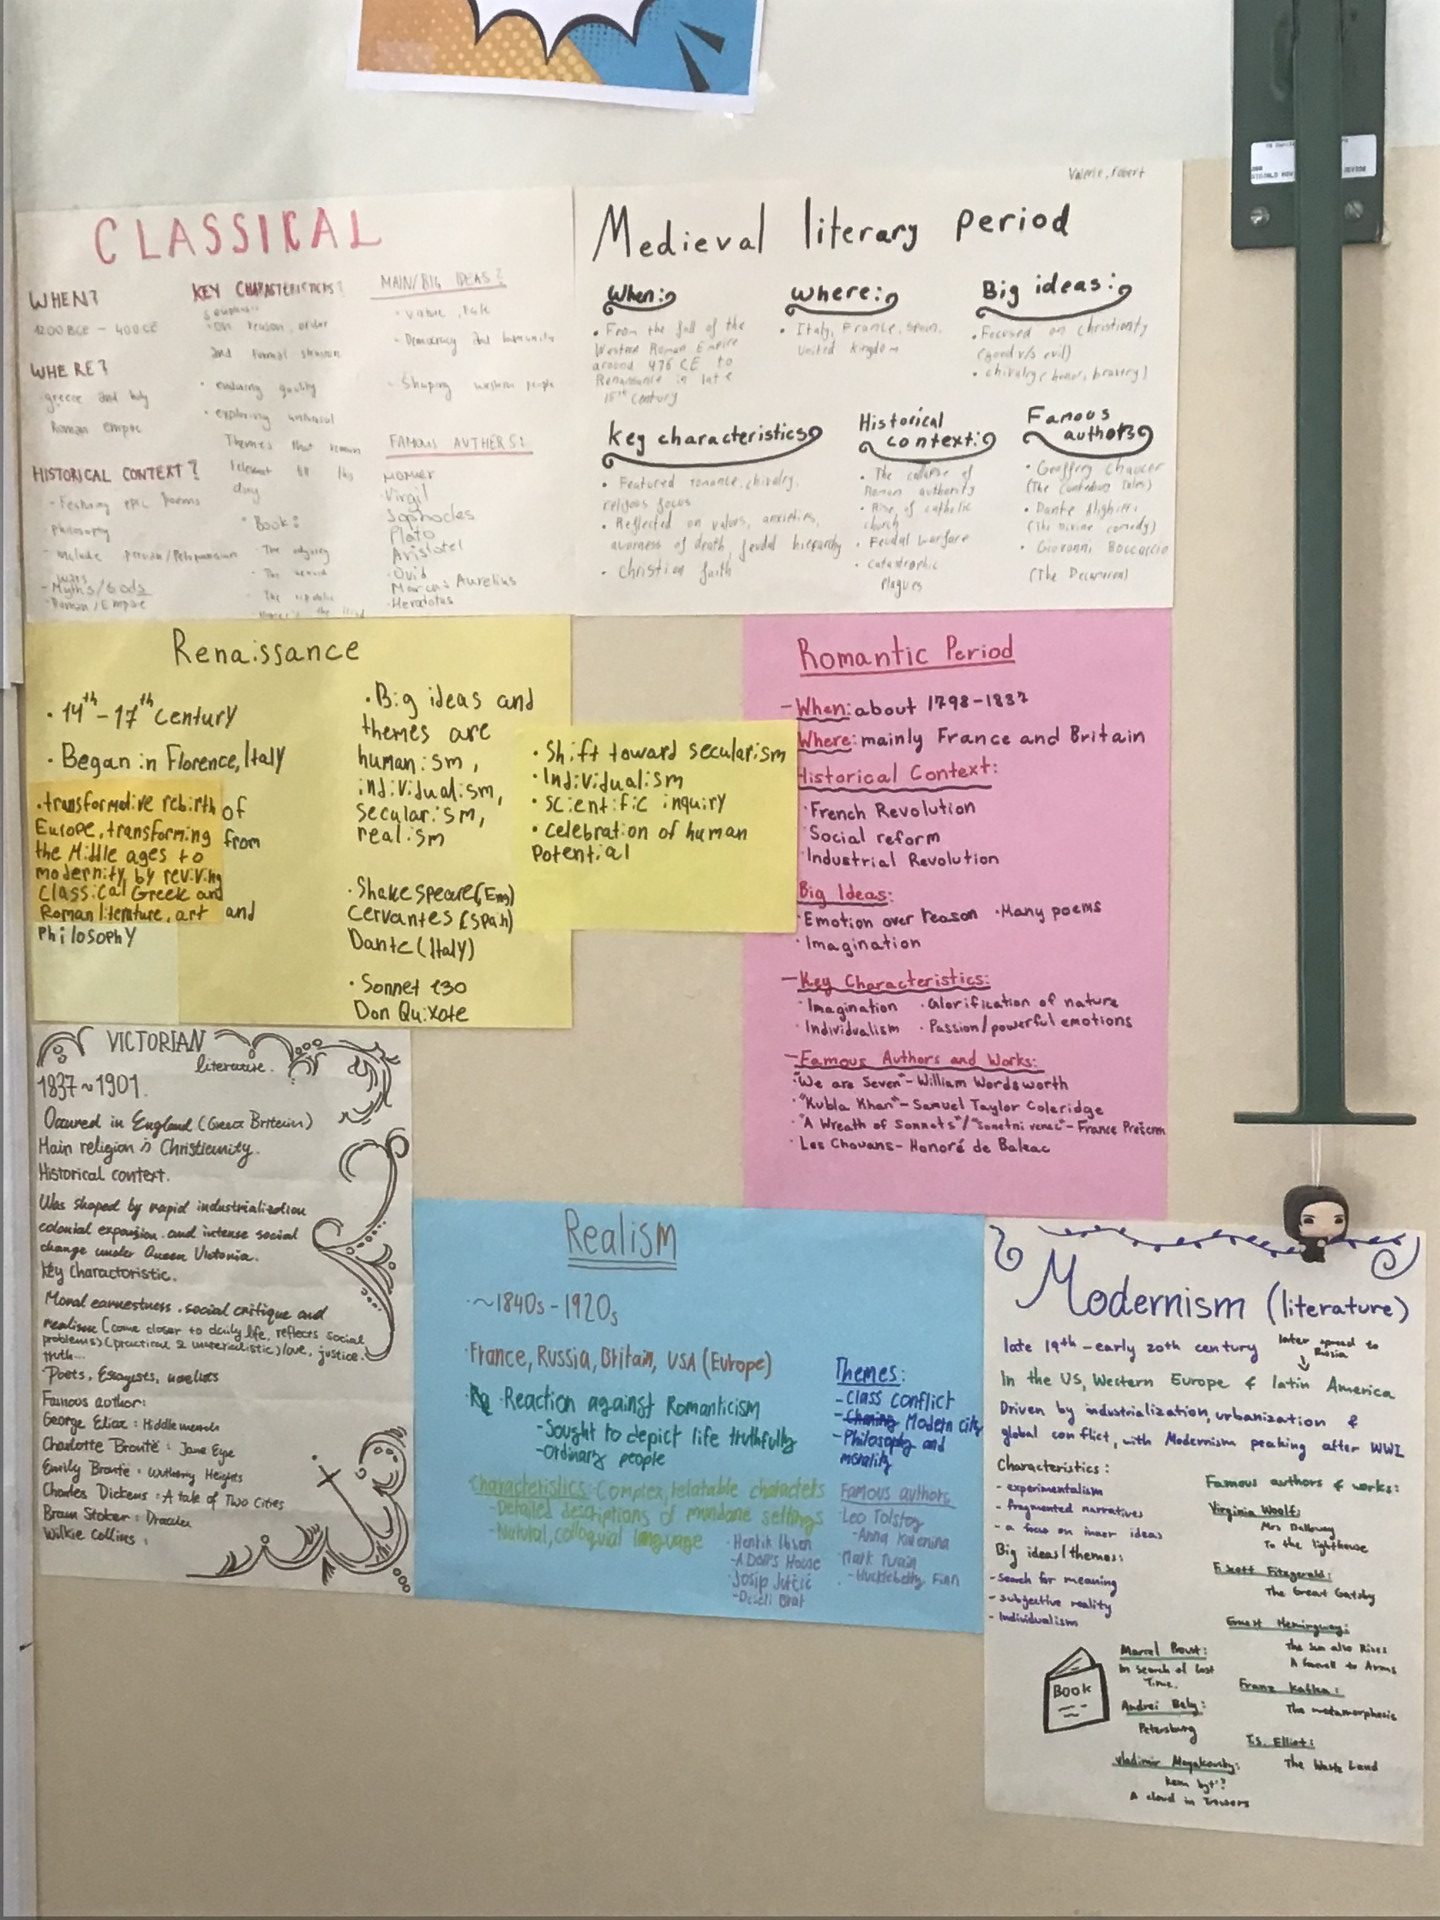 CLASSICAL
WHEN?
1200 BCE - 400 CE
WHERE?
greece and
Roman empire
HISTORICAL CONTEXT?
- Featuring epic poems
Philosophy
wars
- Myths/Gods
- Roman/Empire
KEY CHARACTERISTICS?
on reason, order
and formal
• enduring quality
• exploring universal
Themes that remain
relevant till this
day
• Book:
The
The
The republic
MAIN/BIG IDEAS?
- Democracy and
- Shaping western people
FAMOUS AUTHERS:
HOMER
Virgil
Sophocles
Plato
Aristotel
Ovid
Marcus Aurelius
Herodotus
Valerie, Robert
Medieval literary period
When:
• From the fall of the
Western Roman Empire
around 476 CE to
Renaissance in late
15th century
where:
• Italy, France, Spain,
United Kingdom
Big ideas:
• Focused on christianity
(good v/s evil)
• chivalry (honor, bravery)
key characteristics
• Featured romance, chivalry,
religous focus
• Reflected on values, anxieties,
awarness of death, feudal hierarchy
• Christian faith
Historical
context:
• The collapse of
Roman authority
• Rise of catholic
church
• Feudal warfare
• Catastrophic
plagues
Famous
authors
• Geoffrey Chaucer
(The Canterbury Tales)
• Dante Alighieri
(The Divine comedy)
• Giovanni Boccaccio
(The Decameron)
Renaissance
• 14th - 17th century
• Began in Florence, Italy
• transformative rebirth of
Europe, transforming from
the Middle ages to
modernity by reviving
Classical Greek and
Roman literature, art and
Philosophy
• Big ideas and
themes are
humanism,
individualism,
secularism,
realism
• Shakespeare (Eng)
Cervantes (Spain)
Dante (Italy)
• Sonnet 130
Don Quixote
• Shift toward secularism
• Individualism
• scientific inquiry
• celebration of human
Potential
Romantic Period
- When: about 1798-1837
Where: mainly France and Britain
Historical Context:
• French Revolution
• Social reform
• Industrial Revolution
Big Ideas:
• Emotion over reason • Many poems
• Imagination
- Key Characteristics:
• Imagination • Glorification of nature
• Individualism • Passion/powerful emotions
- Famous Authors and Works:
• "We are Seven" - William Wordsworth
• "Kubla Khan" - Samuel Taylor Coleridge
• "A Wreath of Sonnets"/"Sonetni venec" - France Prešeren
• Les Chouans - Honoré de Balzac
VICTORIAN
literature.
1837~1901.
Occured in England (Great Britain)
Main religion is Christianity.
Historical context.
Was shaped by rapid industrialization
colonial expansion and intense social
change under Queen Victoria.
Key Characteristic.
Moral earnestness, social critique and
realism (come closer to daily life, reflects social
problems) (practical & materialistic) love, justice,
truth...
Poets, Essayists, novelists
Famous author:
George Eliot: Middlemarch
Charlotte Brontë: Jane Eye
Emily Brontë: Wuthering Heights
Charles Dickens: A tale of Two Cities
Bram Stoker: Dracula
Wilkie Collins:
Realism
• ~1840s - 1920s
• France, Russia, Britain, USA (Europe)
• Reaction against Romanticism
- Sought to depict life truthfully
- Ordinary people
Characteristics: Complex, relatable characters
- Detailed descriptions of mundane settings
- Natural, colloquial language
Themes:
- Class conflict
- Modern city
- Philosophy and
morality
Famous authors
Leo Tolstoy
- Anna Karenina
Mark Twain
- Huckleberry Finn
• Henrik Ibsen
- A Doll's House
• Josip Jurčič
- Deseti Brat
Modernism (literature)
late 19th - early 20th century
later spread to
Russia
In the US, Western Europe & latin America
Driven by industrialization, urbanization &
global conflict, with Modernism peaking after WWI
Characteristics:
- experimentalism
- fragmented narratives
- a focus on inner ideas
Big ideas/themes:
- search for meaning
- subjective reality
- Individualism
Famous authors & works:
Virginia Woolf:
Mrs Dalloway
To the lighthouse
F. Scott Fitzgerald:
The Great Gatsby
Ernest Hemingway:
The Sun also Rises
A farewell to Arms
Franz Kafka:
The metamorphosis
T.S. Elliot:
The Waste Land
Marcel Proust:
In search of lost
Time.
Andrei Bely:
Petersburg
Vladimir Mayakovsky:
A cloud in Trousers
BOOK